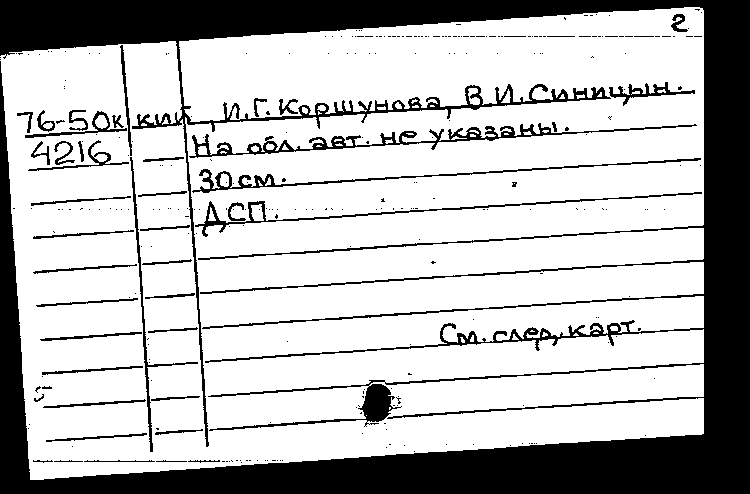 2
76-50к кий, И.Г. Коршунова, В.И. Синицын.
4216 На обл. авт. не указаны.
30 см.
ДСП.
См. след. карт.
5